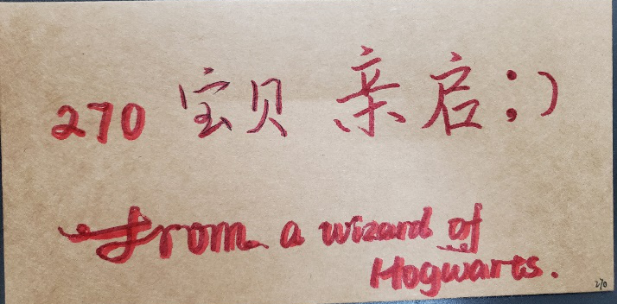 270 宝贝 亲启;)
from a wizard of
Hogwarts.
270